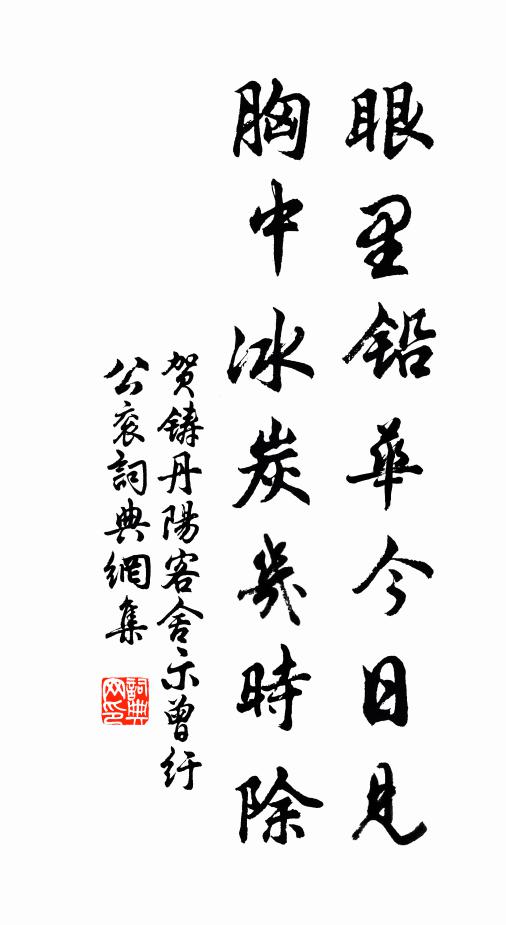 眼里鉛華今日見
胸中冰炭幾時除
贺鑄丹陽客舍示曾紆
公衮詞典網集
詞典網印